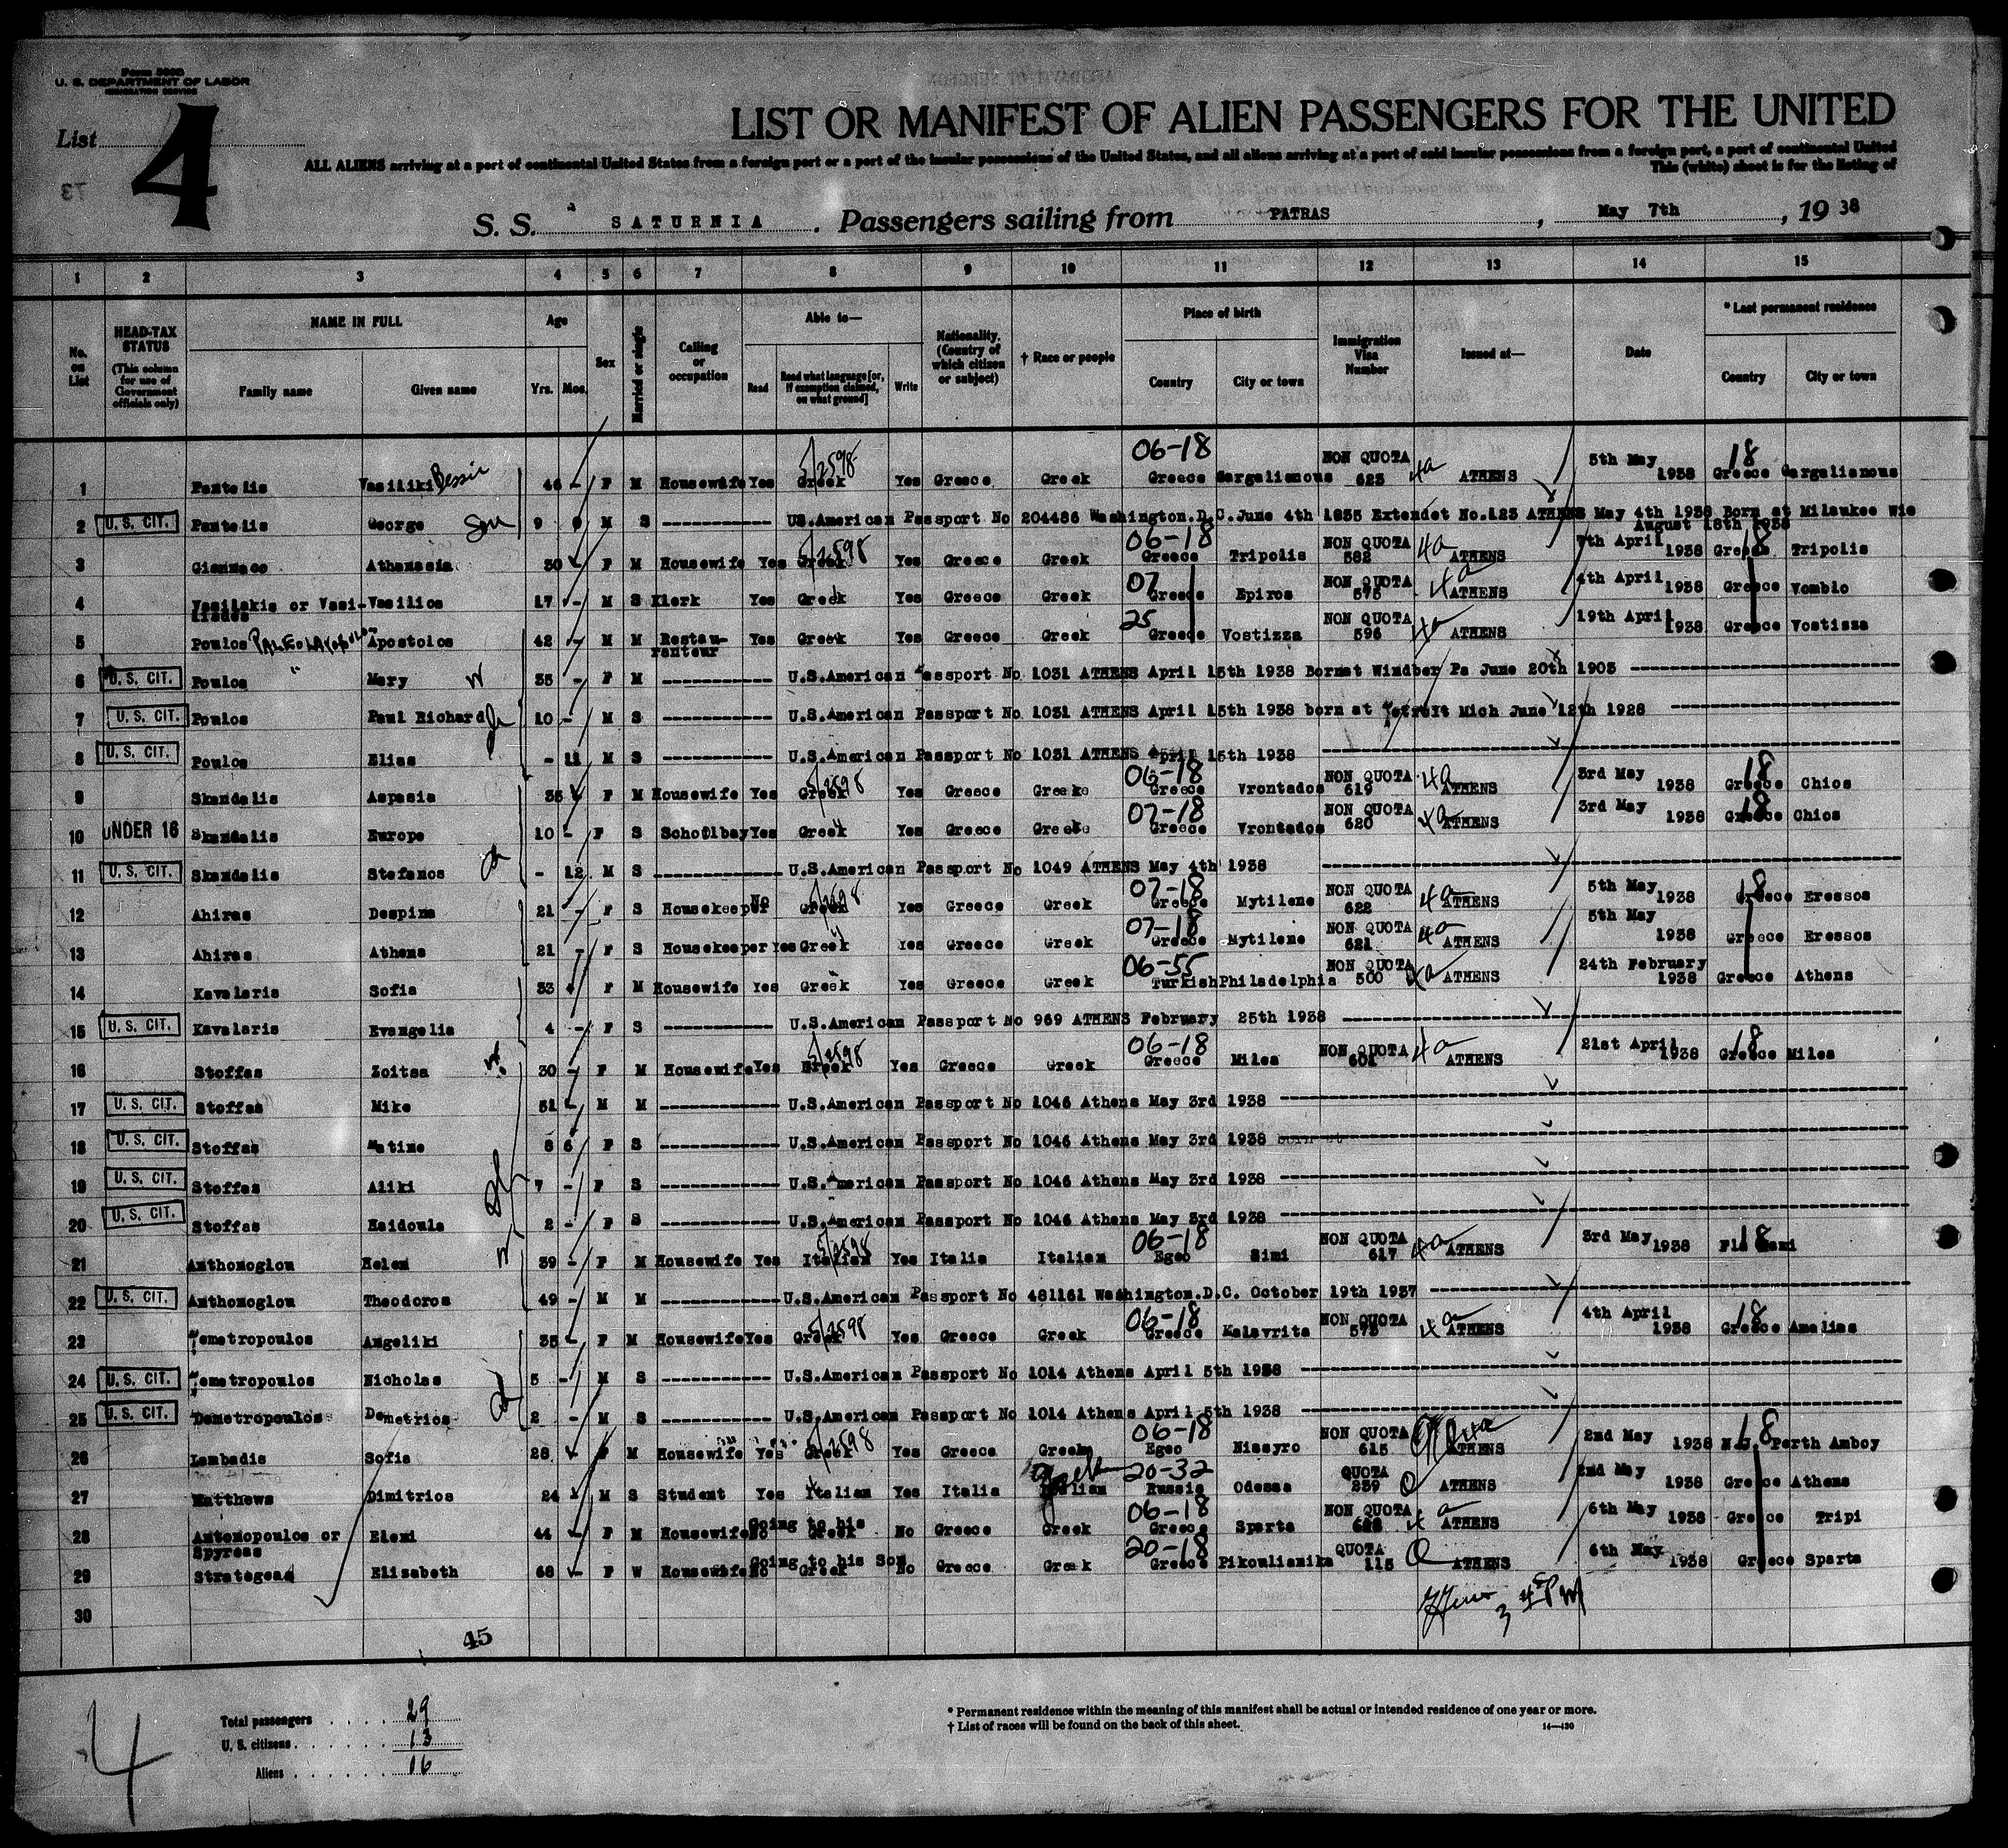 Form 500B
U. S. DEPARTMENT OF LABOR
IMMIGRATION SERVICE
List 4
LIST OR MANIFEST OF ALIEN PASSENGERS FOR THE UNITED
ALL ALIENS arriving at a port of continental United States from a foreign port or a port of the insular possessions of the United States, and all aliens arriving at a port of said insular possessions from a foreign port, a port of continental United
This (white) sheet is for the listing of
S. S. SATURNIA. Passengers sailing from PATRAS, May 7th, 19 38
1 2 3 4 5 6 7 8 9 10 11 12 13 14 15
No. on List
HEAD-TAX STATUS (This column for use of Government officials only)
NAME IN FULL Family name Given name
Age Yrs. Mos.
Sex
Married or single
Calling or occupation
Able to— Read Read what language [or, if exemption claimed, on what ground] Write
Nationality. (Country of which citizen or subject)
† Race or people
Place of birth Country City or town
Immigration Visa Number
Issued at—
Date
* Last permanent residence Country City or town
1 Pantelis Vasiliki Bessie 46 - F M Housewife Yes Greek 5/2598 Yes Greece Greek 06-18 Greece Gargalianous NON QUOTA 623 4a ATHENS 5th May 1938 18 Greece Gargalianous
2 U. S. CIT. Pantelis George Son 9 M S ----------- US.American Passport No 204486 Washington.D.C.June 4th 1935 Extendet No.123 ATHENS May 4th 1938 Born at Milaukee Wis August 18th 1938
3 Athanasia 30 F M Housewife Yes Greek 5/2598 Yes Greece Greek 06-18 Greece Tripolis NON QUOTA 582 4a ATHENS 7th April 1938 Greece 18 Tripolis
4 Vasilakis or Vasi- Vasilios 17 - M S Klerk Yes Greek Yes Greece Greek 07 Greece Epiros NON QUOTA 575 4a ATHENS 4th April 1938 Greece Vomblo
liades
5 Poulos Apostolos 42 - M M Restau- Yes Greek Yes Greece Greek 25 Greece Vostizza NON QUOTA 596 4a ATHENS 19th April 1938 Greece Vostizza
ranteur
6 U. S. CIT. Poulos " Mary W 35 - F M ----------- U.S.American Passport No 1031 ATHENS April 15th 1938 Bornat Windber Pa June 20th 1905
7 U. S. CIT. Poulos Paul Richard 10 - M S ----------- U.S.American Passport No 1031 ATHENS April 15th 1938 born at Detroit Mich June 12th 1928
8 U. S. CIT. Poulos Elias - 11 M S ----------- U.S.American Passport No 1031 ATHENS April 15th 1938
9 Skandalis Aspasia 35 F M Housewife Yes Greek 5/2598 Yes Greece Greeke 06-18 Greece Vrontados NON QUOTA 619 4a ATHENS 3rd May 1938 18 Greece Chios
10 UNDER 16 Skandalis Europe 10 - F S Schoolbay Yes Greek Yes Greece Greeke 07-18 Greece Vrontados NON QUOTA 620 4a ATHENS 3rd May 1938 18 Greece Chios
11 U. S. CIT. Skandalis Stefanos - 12 M S ----------- U.S.American Passport No 1049 ATHENS May 4th 1938
12 Ahiras Despina 21 - F S Housekeeper No Greek 5/2598 Yes Greece Greek 07-18 Greece Mytilene NON QUOTA 622 4a ATHENS 5th May 1938 18 Greece Eressos
13 Ahiras Athena 21 - F S Housekeeper Yes Greek Yes Greece Greek 07-18 Greece Mytilene NON QUOTA 621 4a ATHENS 5th May 1938 Greece Eressos
14 Kavalaris Sofia 33 F M Housewife Yes Greek Yes Greece Greek 06-55 Turkish Philadelphia NON QUOTA 500 4a ATHENS 24th February 1938 Greece Athens
15 U. S. CIT. Kavalaris Evangelia 4 - F S ----------- U.S.American Passport No 969 ATHENS February 25th 1938
16 Stoffas Zoitsa W 30 - F M Housewife Yes Greek 5/2598 Yes Greece Greek 06-18 Greece Milea NON QUOTA 601 4a ATHENS 21st April 1938 18 Greece Milea
17 U. S. CIT. Stoffas Mike 51 M M ----------- U.S.American Passport No 1046 Athens May 3rd 1938
18 U. S. CIT. Stoffas Matine 8 6 F S ----------- U.S.American Passport No 1046 Athens May 3rd 1938
19 U. S. CIT. Stoffas Aliki 7 - F S ----------- U.S.American Passport No 1046 Athens May 3rd 1938
20 U. S. CIT. Stoffas Haidoula 2 - F S ----------- U.S.American Passport No 1046 Athens May 3rd 1938
21 Anthonoglou Helen W 39 - F M Housewife Yes Italian 5/2598 Yes Italia Italian 06-18 Egeo Simi NON QUOTA 617 4a ATHENS 3rd May 1938 18
22 U. S. CIT. Anthonoglou Theodoros 49 - M M ----------- U.S.American Passport No 481161 Washington.D.C. October 19th 1937
23 Demetropoulos Angeliki 35 F M Housewife Yes Greek 5/2598 Yes Greece Greek 06-18 Greece Kalavrita NON QUOTA 573 4a ATHENS 4th April 1938 18 Greece Amalias
24 U. S. CIT. Demetropoulos Nicholas 5 - M S ----------- U.S.American Passport No 1014 Athens April 5th 1938
25 U. S. CIT. Demetropoulos Demetrios 2 - M S ----------- U.S.American Passport No 1014 Athens April 5th 1938
26 Lambadis Sofia 28 F M Housewife Yes Greek 5/2598 Yes Greece Greek 06-18 Egeo Nissyro NON QUOTA 615 4a ATHENS 2nd May 1938 N.J. 18 Perth Amboy
27 Matthews Dimitrios 24 M S Student Yes Italian Yes Italia Italian Greek 20-32 Russia Odessa QUOTA 239 Q ATHENS 2nd May 1938 Greece Athens
28 Antonopoulos or Eleni 44 F M Housewife No Going to his Greek No Greece Greek 06-18 Greece Sparta NON QUOTA 4a ATHENS 6th May 1938 Greece Tripi
Spyreas
29 Strategeas Elizabeth 68 F W Housewife No Going to his Son Greek No Greece Greek 20-18 Greece Pikoulianika QUOTA 115 Q ATHENS 6th May 1938 Greece Sparta
30
45
Total passengers . . . . 29
U. S. citizens . . . . . 13
Aliens . . . . . . 16
4
* Permanent residence within the meaning of this manifest shall be actual or intended residence of one year or more.
† List of races will be found on the back of this sheet.
14—430